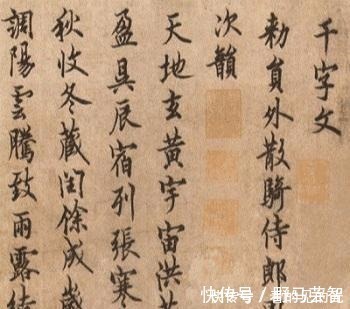 千字文
勅員外散騎侍郎
次韻
天地玄黃宇宙洪
盈昃辰宿列張寒
秋收冬藏閏餘成歲
調陽雲騰致雨露結
快传号/野马荣智